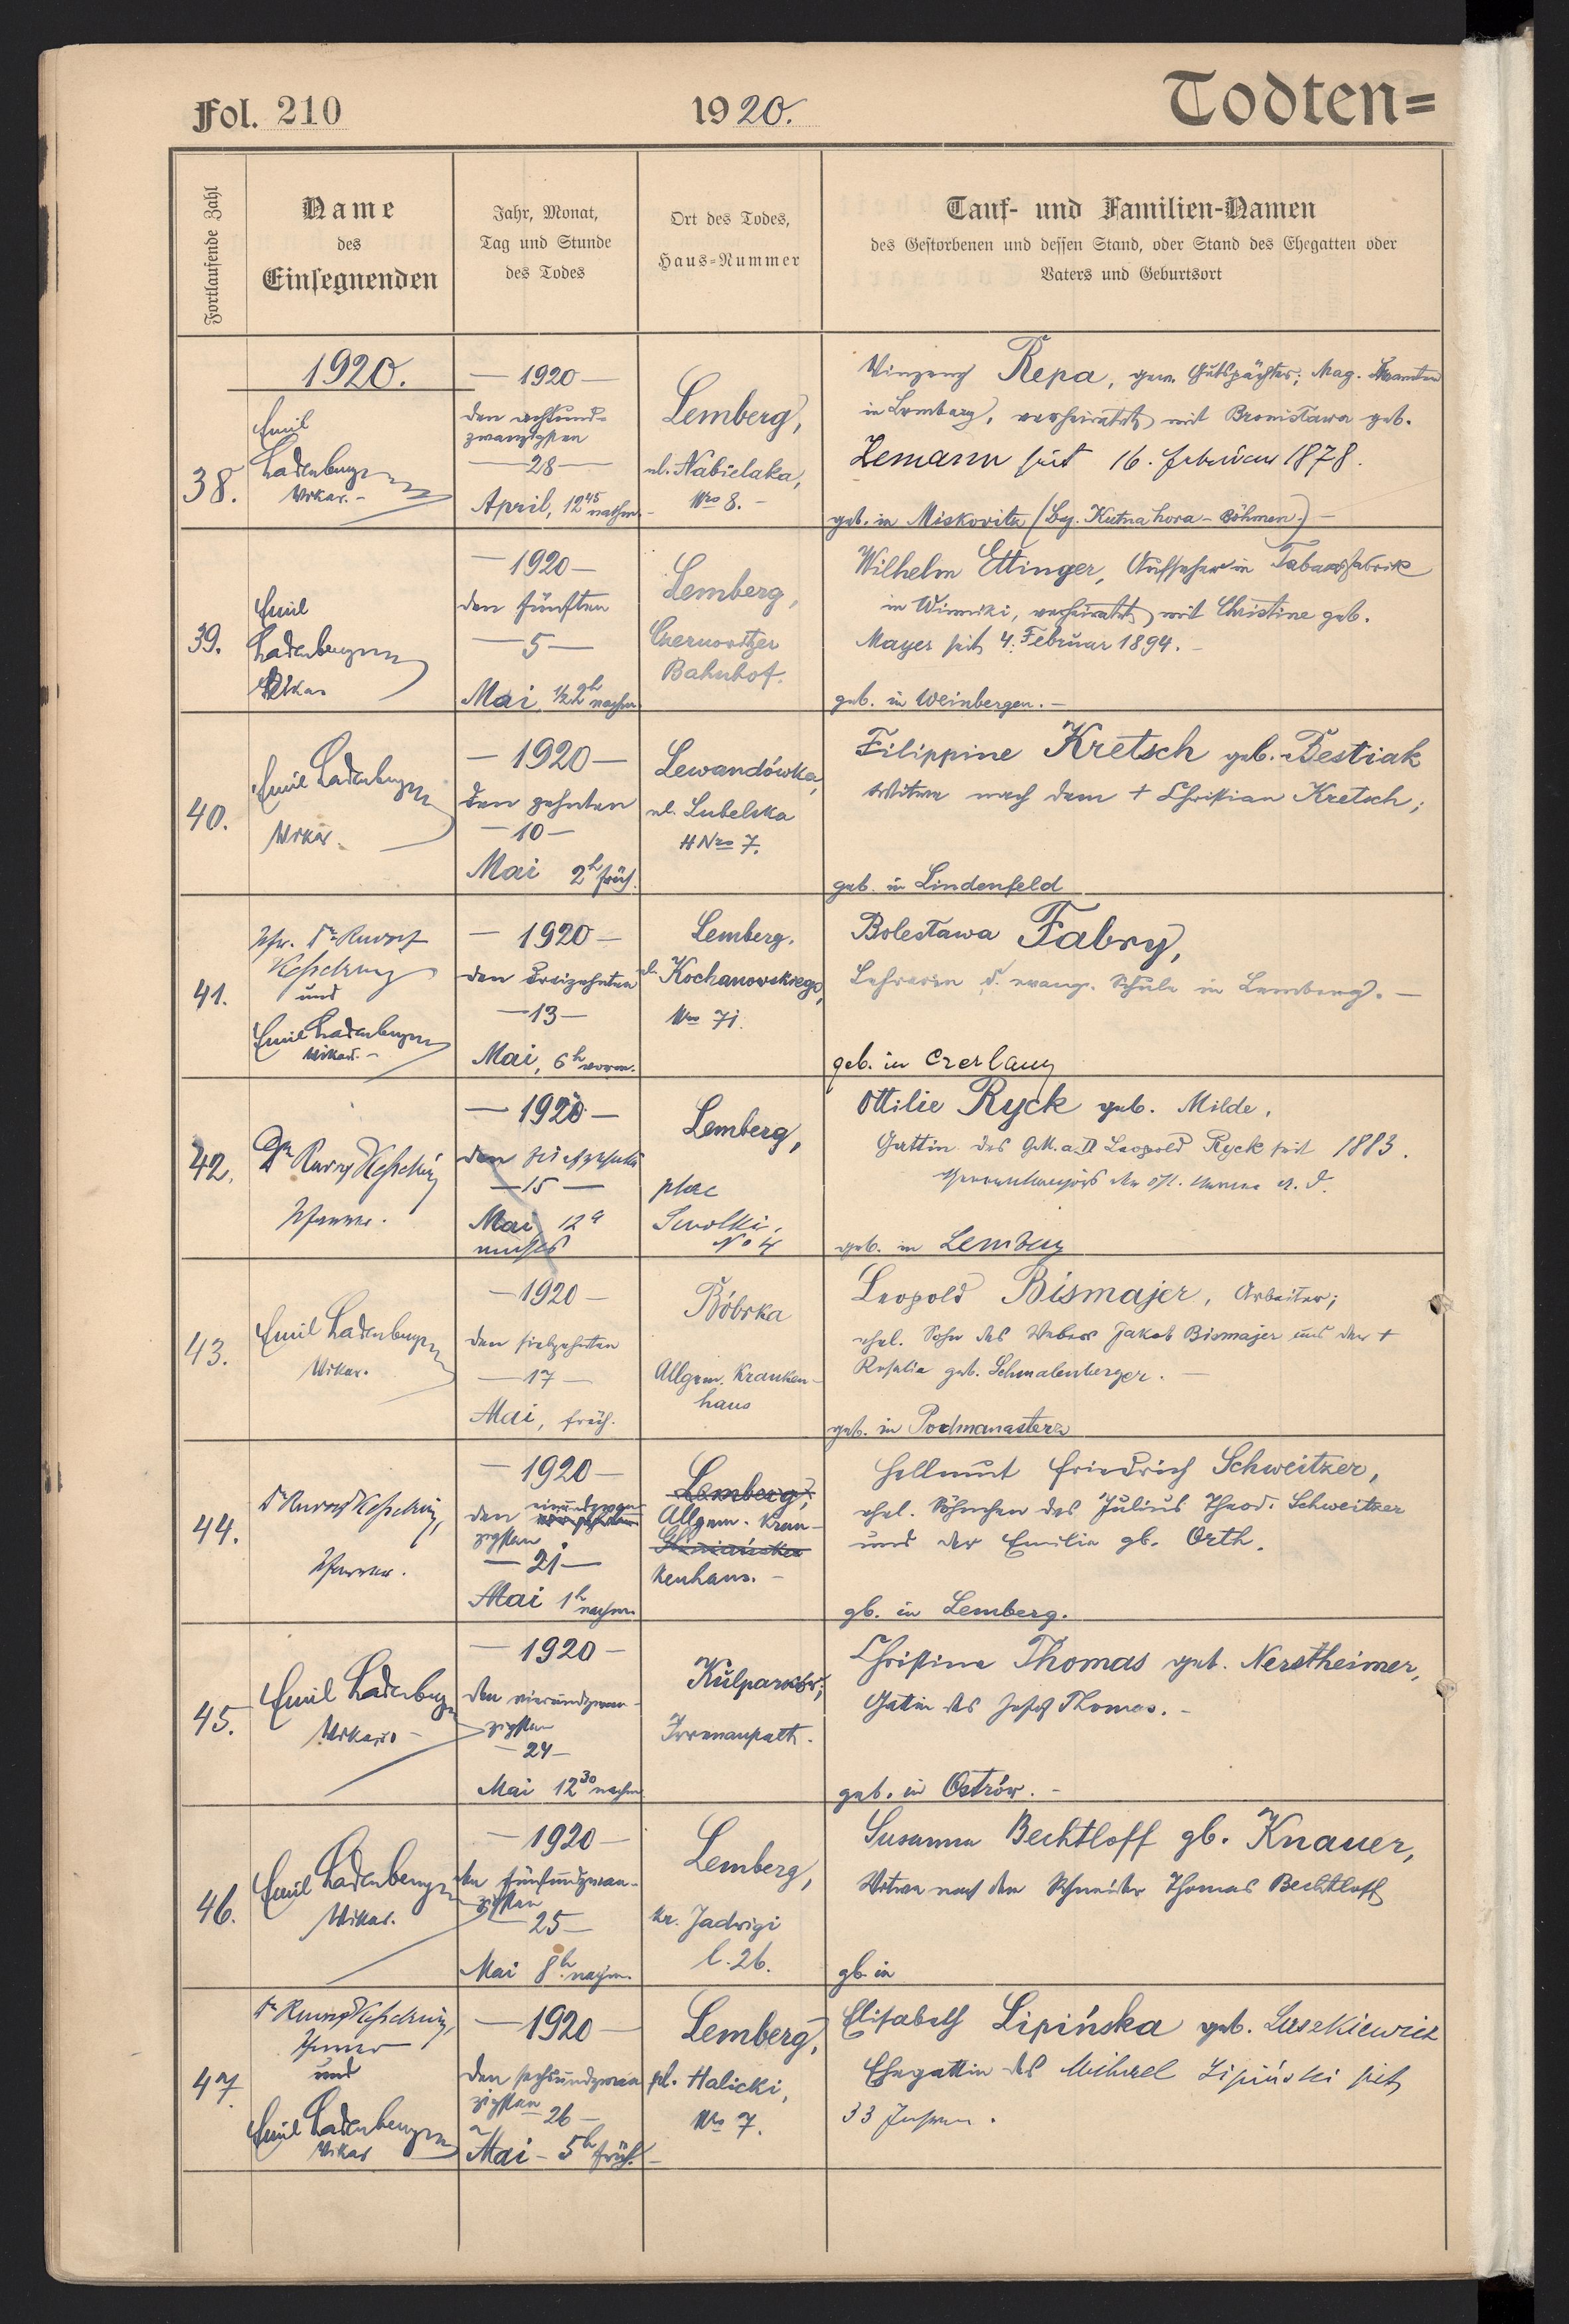 Fol. 210
1920.
Todten=
Fortlaufende Zahl
Name
des
Einsegnenden
Jahr, Monat,
Tag und Stunde
des Todes
Ort des Todes,
Haus=Nummer
Tauf- und Familien-Namen
des Gestorbenen und dessen Stand, oder Stand des Ehegatten oder
Vaters und Geburtsort
38.
1920.
Emil
Ladenberger
Vikar.-
— 1920 —
den achtund-
zwanzigsten
— 28 —
April, 12 45 nachm.
Lemberg,
ul. Nabielaka,
Nro 8. -
Vinzenz Repa, gew. Gutspächter; Mag. Beamter
in Lemberg, verheiratet mit Bronisława geb.
Zemann seit 16. Februar 1878.
geb. in Miskovitz (Bez. Kutna hora - Böhmen.) -
39.
Emil
Ladenberger
Vikar
— 1920 —
den fünften
— 5 —
Mai, ½ 2h nachm.
Lemberg,
Czernovitzer
Bahnhof.
Wilhelm Ettinger, Aufseher in Tabaksfabrik
in Winniki, verheiratet mit Christine geb.
Mayer seit 4. Februar 1894. -
geb. in Weinbergen. -
40.
Emil Ladenberger
Vikar.
— 1920 —
den zehnten
— 10 —
Mai 2h früh.
Lewandówka,
ul. Lubelska
H Nro 7.
Filippine Kretsch geb. Bestiak
Witwe nach dem + Christian Kretsch;
geb. in Lindenfeld
41.
Pfr. Dr Rudolf
Kesselring
und
Emil Ladenberger
Vikar. -
— 1920 —
den dreizehnten
— 13 —
Mai, 6h vorm.
Lemberg,
ul. Kochanowskiego,
Nro 71.
Bolesława Fabry,
Lehrerin d. evang. Schule in Lemberg. —
geb. in Czerlany
42.
Dr Rudolf Kesselring
Pfarrer.
— 1920 —
den fünfzehnten
— 15 —
Mai 12h
Lemberg,
plac
Smolki,
No 4
Ottilie Ryck geb. Milde,
Gattin des G.M. a. D Leopold Ryck seit 1883.
geb. in Lemberg
43.
Emil Ladenberger
Vikar.
— 1920 —
den siebzehnten
— 17 —
Mai, früh.
Bóbrka
Allgem. Kranken-
haus
Leopold Bismajer, Arbeiter;
ehel. Sohn des Webers Jakob Bismajer und der +
Rosalia geb. Schmalenberger. —
geb. in Podmanasterz
44.
Dr Rudolf Kesselring,
Pfarrer.
— 1920 —
den einundzwan-
zigsten
— 21 —
Mai 1h nachm.
Lemberg,
Allgem. Kran-
kenhaus. -
Hellmut Friedrich Schweitzer,
ehel. Söhnchen des Julius Theod. Schweitzer
und der Emilie gb. Orth.
gb. in Lemberg.
45.
Emil Ladenberger
Vikar. -
— 1920 —
den vierundzwan-
zigsten
— 24 —
Mai 12 30 nachm
Kulparków,
Irrenanstalt.
Christina Thomas geb. Nerstheimer,
Gattin des Josef Thomas. -
geb. in Ostrów. -
46.
Emil Ladenberger
Vikar.
— 1920 —
den fünfundzwan-
zigsten
— 25 —
Mai 8h nachm.
Lemberg,
kr. Jadwigi
l. 26.
Susanna Bechtloff gb. Knauer,
Witwe nach dem Schneider Thomas Bechtloff
gb. in
47.
Dr Rudolf Kesselring,
Pfarrer
und
Emil Ladenberger
Vikar
— 1920 —
den sechsundzwan
zigsten
— 26 —
Mai - 5h früh. -
Lemberg,
pl. Halicki,
Nro 7.
Elisabeth Lipińska geb. Luszkiewicz
Ehegattin des Michael Lipiński seit
33 Jahren.